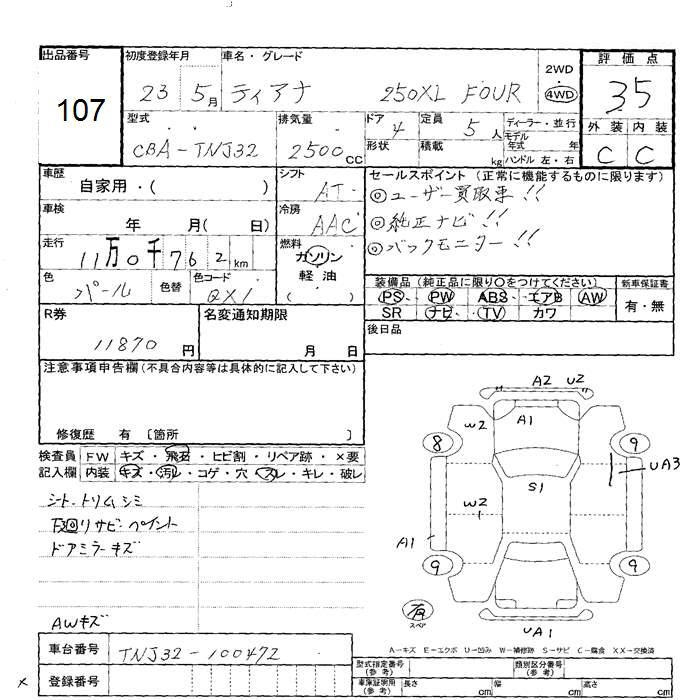 出品番号 初度登録年月 車名・グレード 2WD 評価点
107 23 5月 ティアナ 250XL FOUR 4WD 35
型式 排気量 ドア 4 定員 5人 ディーラー・並行 外装 内装
モデル年式 年
CBA-TNJ32 2500CC 形状 積載 kg ハンドル 左・右 C C
車歴 シフト セールスポイント(正常に機能するものに限ります)
自家用・( ) AT ◎ユーザー買取車!!
車検 冷房 ◎純正ナビ!!
年 月( 日) AAC ◎バックモニター!!
走行 燃料
11万0千762km ガソリン
軽油
( )
色 パール 色替 色コード QX1
装備品(純正品に限り○をつけてください) 新車保証書
PS・ PW ABS・ エアB AW 有・無
SR ナビ・ TV カワ
R券 名変通知期限 後日品
11870円 月 日
注意事項申告欄(不具合内容等は具体的に記入して下さい)
修復歴 有 〔箇所 〕
検査員 FW キズ・飛石・ヒビ割・リペア跡・×要
記入欄 内装 キズ・汚レ・コゲ・穴・スレ・キレ・破レ
シート・トリムシミ
下廻リサビ・ペイント
ドアミラーキズ
AWキズ
A2 U2
W2 A1
8 9
S1 UA3
W2
A1
9 9
有
スペア
UA1
A-キズ E-エクボ U-凹み W-補修跡 S-サビ C-腐食 XX-交換済
車台番号 TNJ32-100472
型式指定番号(参考) 類別区分番号(参考)
× 登録番号
車庫証明用(参考) 長さ cm 幅 cm 高さ cm